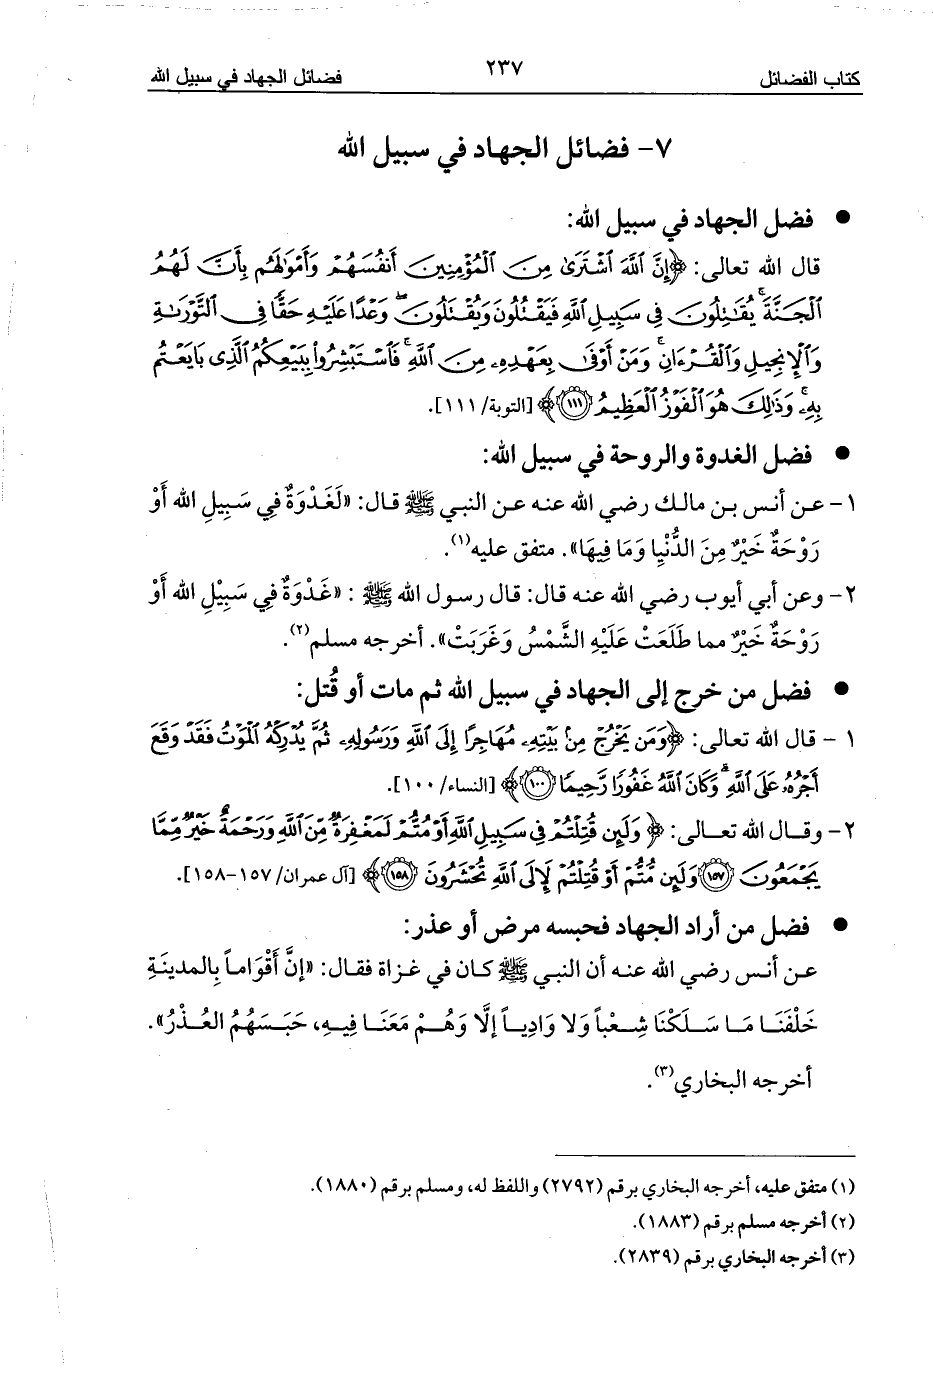 كتاب الفضائل ٢٣٧ فضائل الجهاد في سبيل الله
٧- فضائل الجهاد في سبيل الله
● فضل الجهاد في سبيل الله:
قال الله تعالى: ﴿إِنَّ ٱللَّهَ ٱشْتَرَىٰ مِنَ ٱلْمُؤْمِنِينَ أَنفُسَهُمْ وَأَمْوَٰلَهُم بِأَنَّ لَهُمُ
ٱلْجَنَّةَ ۚ يُقَٰتِلُونَ فِى سَبِيلِ ٱللَّهِ فَيَقْتُلُونَ وَيُقْتَلُونَ ۖ وَعْدًا عَلَيْهِ حَقًّا فِى ٱلتَّوْرَىٰةِ
وَٱلْإِنجِيلِ وَٱلْقُرْءَانِ ۚ وَمَنْ أَوْفَىٰ بِعَهْدِهِۦ مِنَ ٱللَّهِ ۚ فَٱسْتَبْشِرُوا۟ بِبَيْعِكُمُ ٱلَّذِى بَايَعْتُم
بِهِۦ ۚ وَذَٰلِكَ هُوَ ٱلْفَوْزُ ٱلْعَظِيمُ ١١١﴾ [التوبة/١١١].
● فضل الغدوة والروحة في سبيل الله:
١- عن أنس بن مالك رضي الله عنه عن النبي ﷺ قال: «لَغَدْوَةٌ فِي سَبِيلِ الله أَوْ
رَوْحَةٌ خَيْرٌ مِنَ الدُّنْيَا وَمَا فِيهَا». متفق عليه(١).
٢- وعن أبي أيوب رضي الله عنه قال: قال رسول الله ﷺ : «غَدْوَةٌ فِي سَبِيْلِ الله أَوْ
رَوْحَةٌ خَيْرٌ مما طَلَعَتْ عَلَيْهِ الشَّمْسُ وَغَرَبَتْ». أخرجه مسلم(٢).
● فضل من خرج إلى الجهاد في سبيل الله ثم مات أو قُتل:
١ - قال الله تعالى: ﴿وَمَن يَخْرُجْ مِنۢ بَيْتِهِۦ مُهَاجِرًا إِلَى ٱللَّهِ وَرَسُولِهِۦ ثُمَّ يُدْرِكْهُ ٱلْمَوْتُ فَقَدْ وَقَعَ
أَجْرُهُۥ عَلَى ٱللَّهِ ۗ وَكَانَ ٱللَّهُ غَفُورًا رَّحِيمًا ١٠٠﴾ [النساء/١٠٠].
٢- وقال الله تعالى: ﴿وَلَئِن قُتِلْتُمْ فِى سَبِيلِ ٱللَّهِ أَوْ مُتُّمْ لَمَغْفِرَةٌ مِّنَ ٱللَّهِ وَرَحْمَةٌ خَيْرٌ مِّمَّا
يَجْمَعُونَ ١٥٧ وَلَئِن مُّتُّمْ أَوْ قُتِلْتُمْ لَإِلَى ٱللَّهِ تُحْشَرُونَ ١٥٨﴾ [آل عمران/١٥٧-١٥٨].
● فضل من أراد الجهاد فحبسه مرض أو عذر:
عن أنس رضي الله عنه أن النبي ﷺ كان في غزاة فقال: «إنَّ أَقْوَاماً بِالمدينَةِ
خَلْفَنَا مَا سَلَكْنَا شِعْباً وَلا وَادِياً إلَّا وَهُمْ مَعَنَا فِيهِ، حَبَسَهُمُ العُذْرُ».
أخرجه البخاري(٣).
(١) متفق عليه، أخرجه البخاري برقم (٢٧٩٢) واللفظ له، ومسلم برقم (١٨٨٠).
(٢) أخرجه مسلم برقم (١٨٨٣).
(٣) أخرجه البخاري برقم (٢٨٣٩).